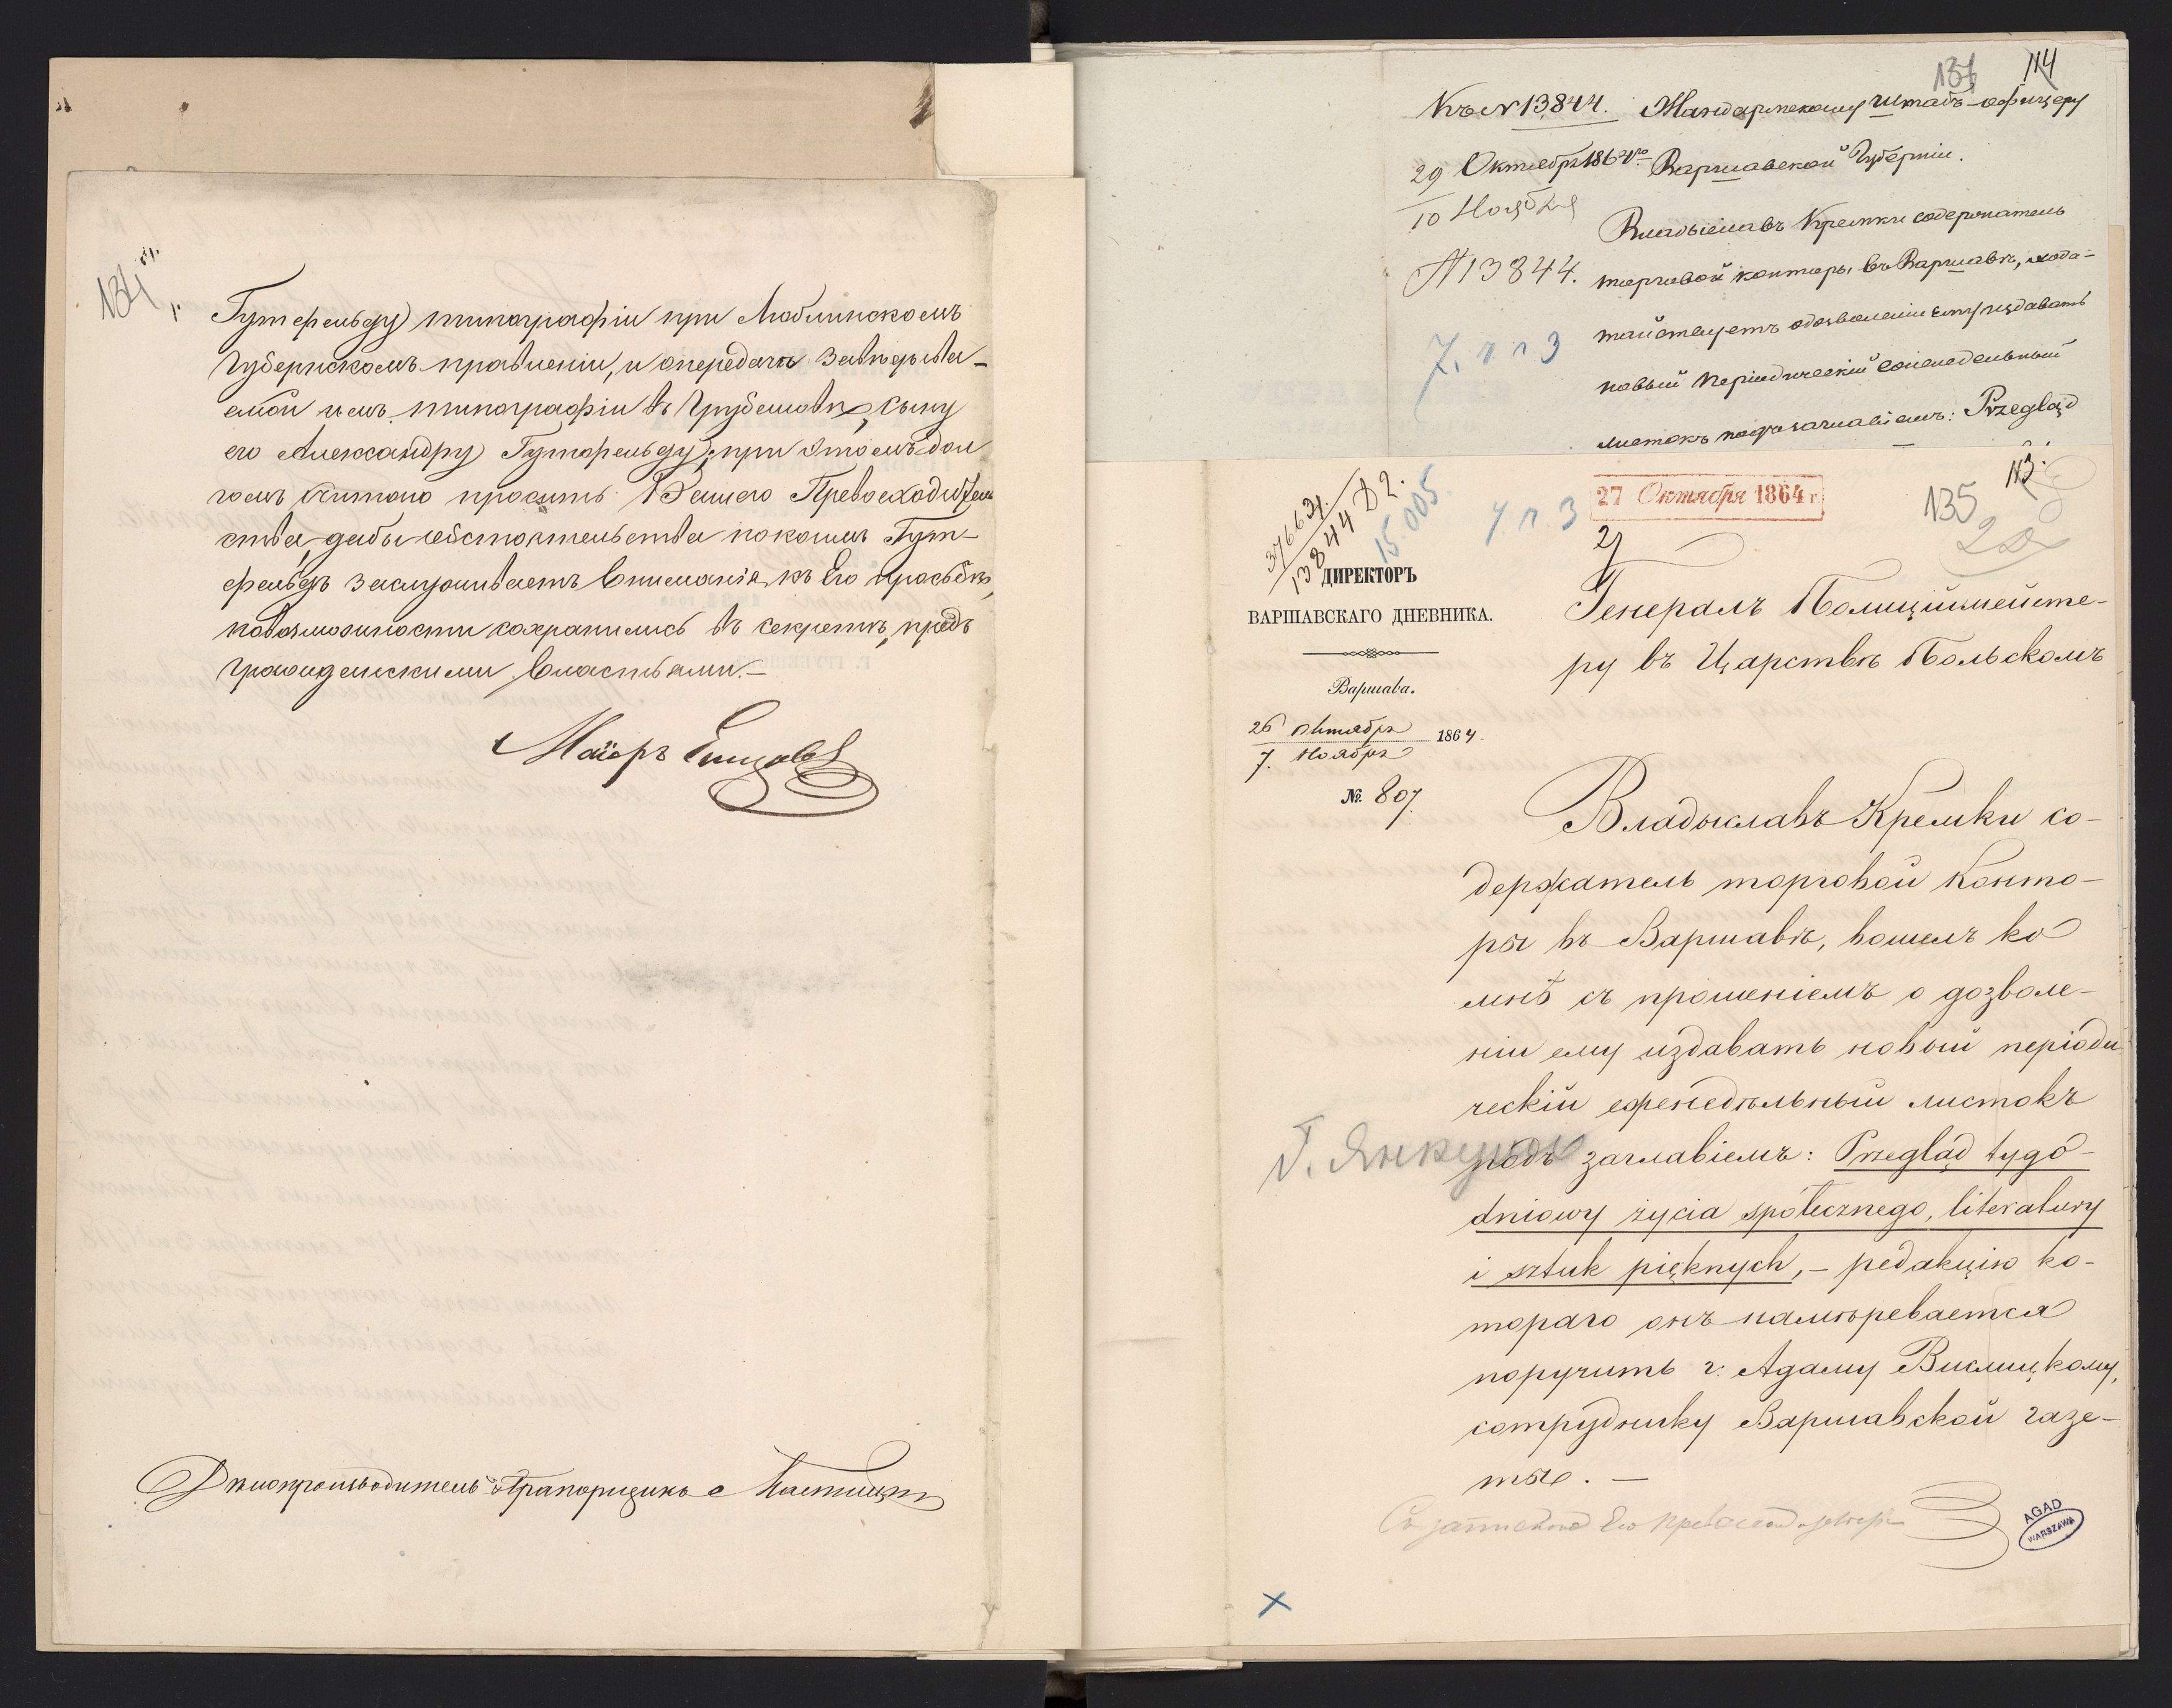 134
Гутфельду типографіи при Люблинскомъ
Губернскомъ правленіи, и о передачѣ завѣдыва-
емой имъ типографіи въ Грубешовѣ, сыну
его Александру Гутфельду; при этомъ дол
гомъ считаю просить Вашего Превосходитель
ства, дабы обстоятельства по коимъ Гут-
фельдъ заслуживаетъ вниманія къ его просьбѣ,
по возможности сохранились въ секретѣ, предъ
гражданскими властями.-
Маіоръ
Дѣлопроизводитель Прапорщикъ
136 114
Къ № 13,844. Жандармскому штабъ-офицеру
29 Октября 1864 го Варшавской Губерніи.
10 Ноября
Владыславъ Кремки содержатель
№ 13844. торговой конторы въ Варшавѣ, хода-
тайствуетъ о дозволеніи ему издавать
новый періодическій еженедельный
листокъ подъ заглавіемъ: Przegląd
13844 Д2.
15005
27 Октября 1864 г.
135
113.
ДИРЕКТОРЪ
ВАРШАВСКАГО ДНЕВНИКА.
Варшава.
26 Октября
7. Ноября 1864.
№ 807.
Генералъ Полиціймейсте-
ру въ Царствѣ Польскомъ
Владыславъ Кремки со-
держатель торговой конто-
ры въ Варшавѣ, вошелъ ко
мнѣ съ прошеніемъ о дозволе-
ніи ему издавать новый періоди
ческій еженедѣльный листокъ
подъ заглавіемъ: Przegląd tygo-
dniowy życia społecznego, literatury
i sztuk pięknych,- редакцію ко-
тораго онъ намѣревается
поручить г. Адаму Вислицкому,
сотруднику Варшавской газе-
ты. -
AGAD
WARSZAWA